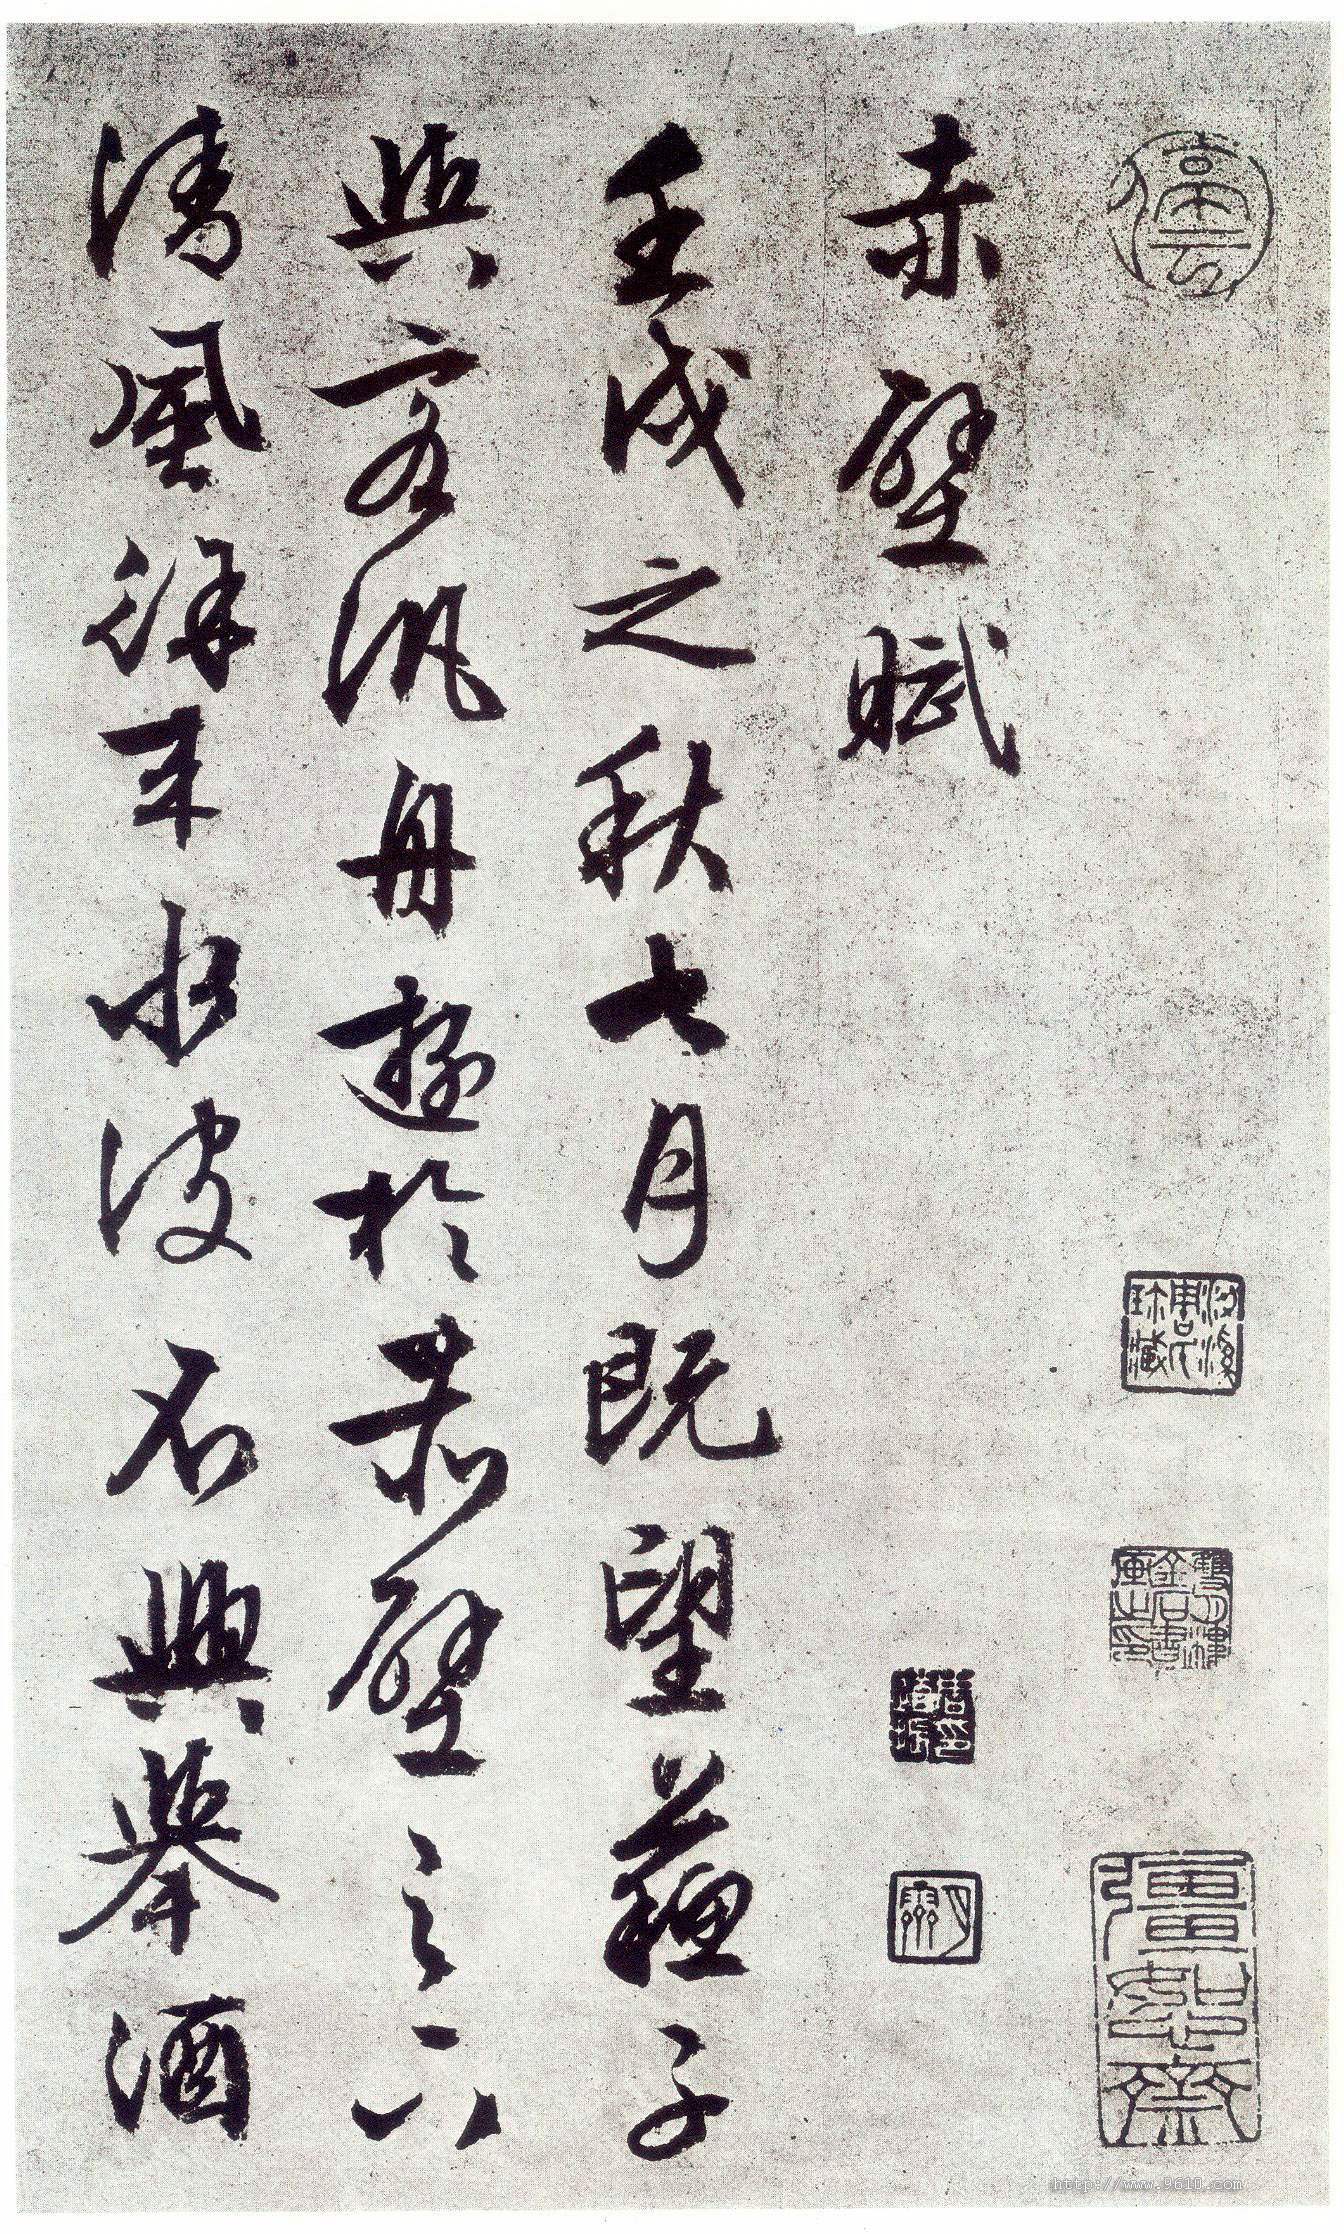 停雲
彊恕齋
赤壁賦
壬戌之秋七月既望蘇子
與客汎舟遊於赤壁之下
清風徐來水波不興舉酒
http://www.9610.com